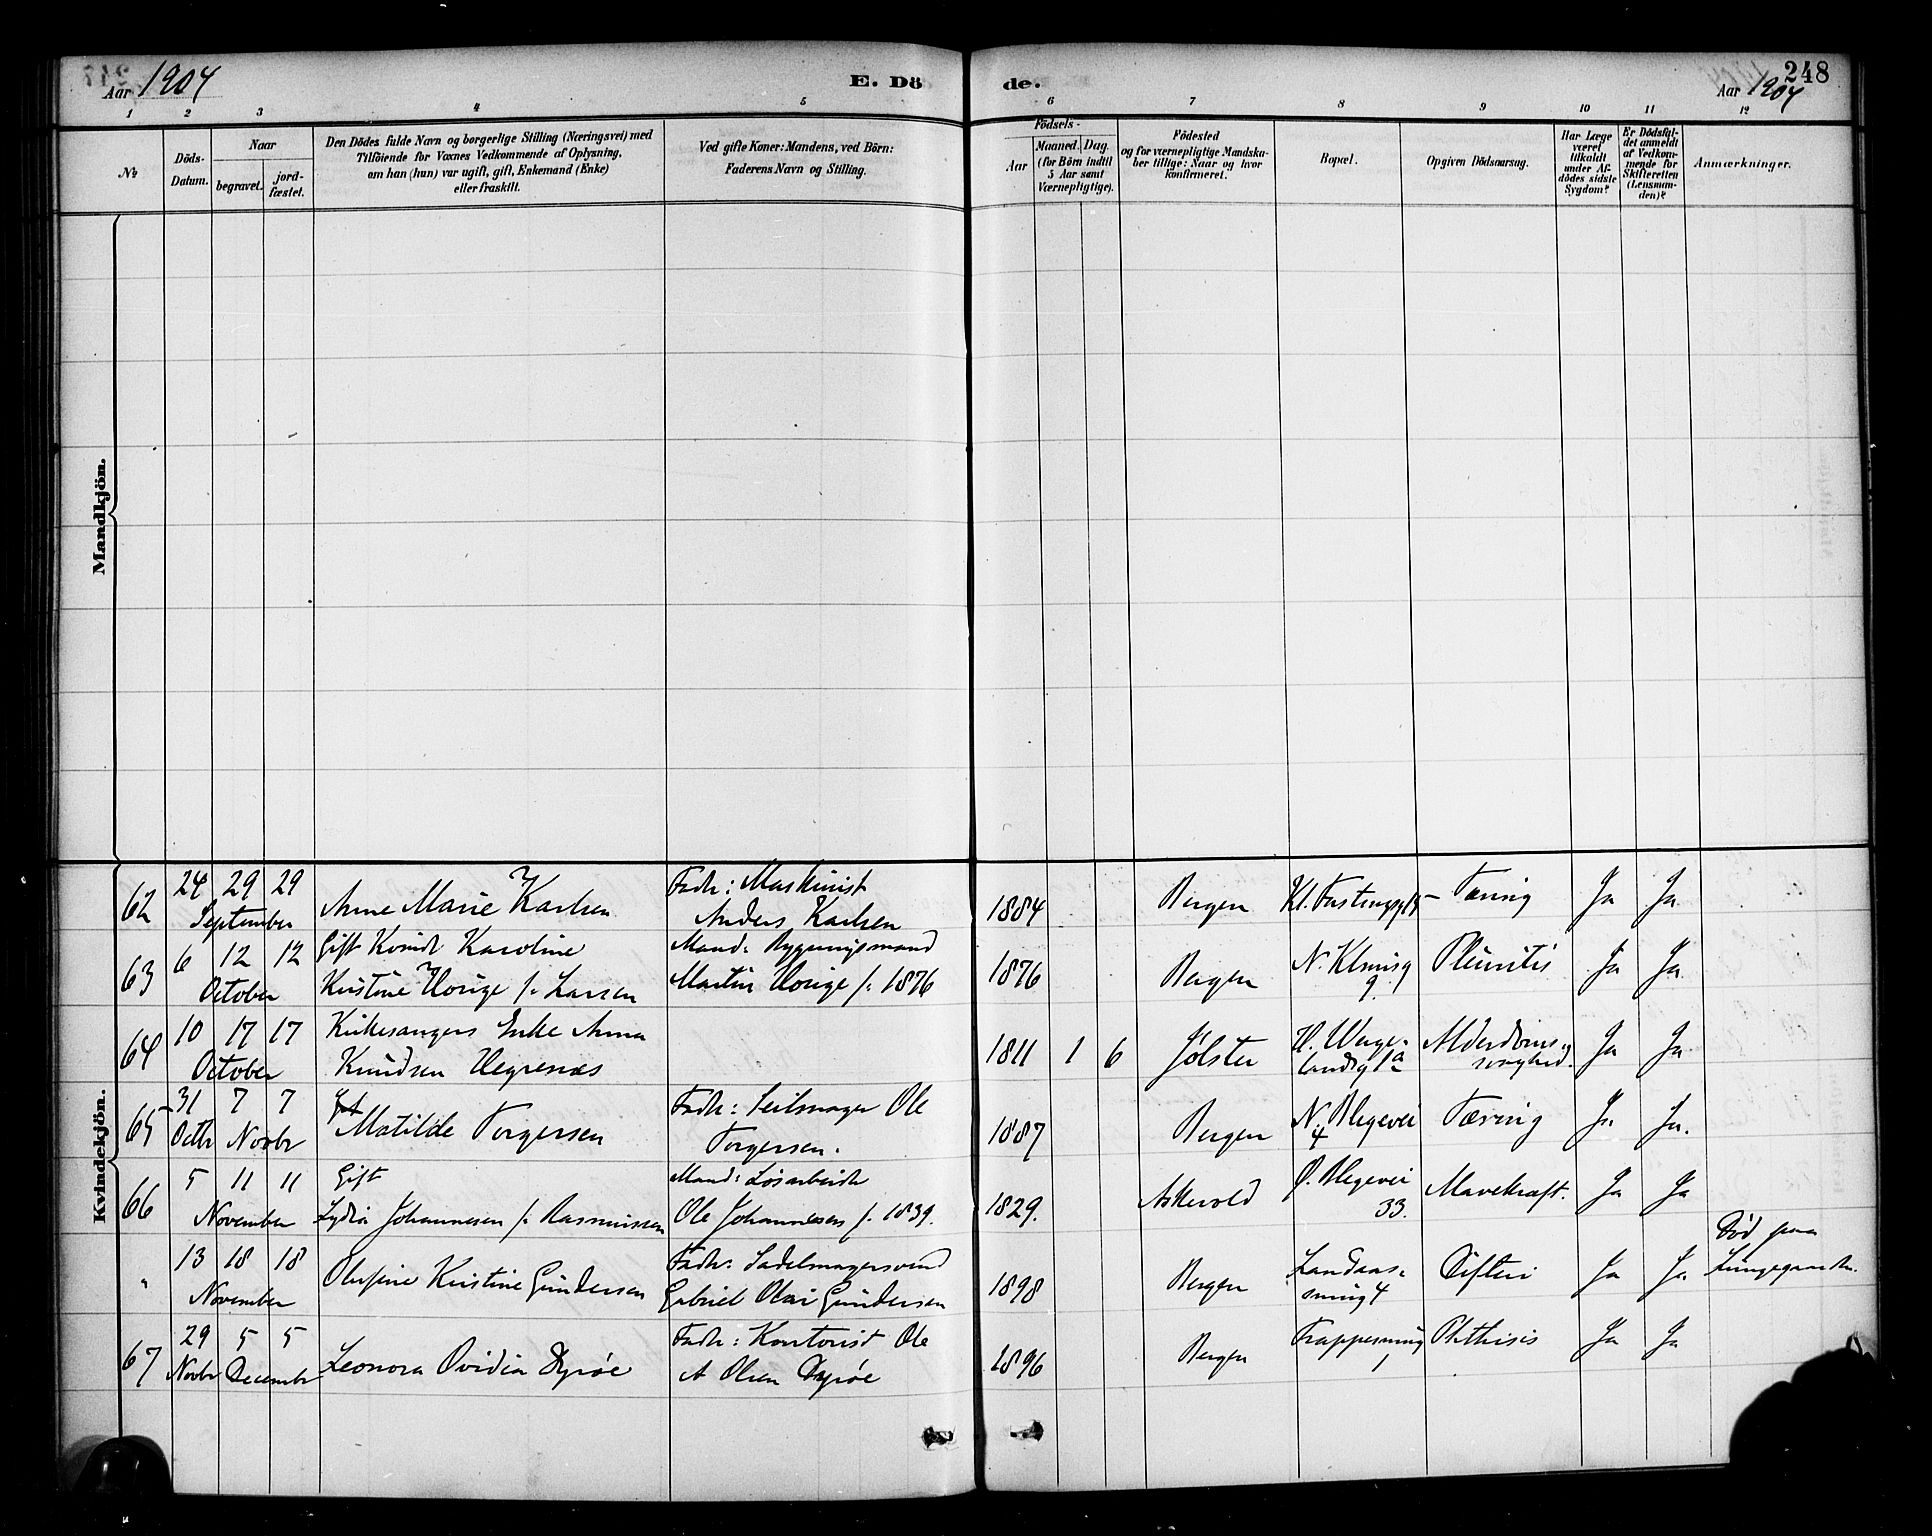 Aar 1904
E. Dö
de.
248
Aar 1904
1 2 3 4 5 6 7 8 9 10 11 12
No
Döds-
Datum.
Naar
begravet.
jord-
fæstet.
Den Dödes fulde Navn og borgerlige Stilling (Næringsvei) med
Tilföiende for Voxnes Vedkommende af Oplysning,
om han (hun) var ugift, gift, Enkemand (Enke)
eller fraskilt.
Ved gifte Koner: Mandens, ved Börn:
Faderens Navn og Stilling.
Födsels-
Aar
Maaned. Dag.
(for Börn indtil
5 Aar samt
Værnepligtige).
Födested
og for værnepligtige Mandska-
ber tillige: Naar og hvor
konfirmeret.
Bopæl.
Opgiven Dödsaarsag.
Har Læge
været
tilkaldt
under Af-
dödes sidste
Sygdom?
Er Dödsfal-
det anmeldt
af Vedkom-
mende for
Skifteretten
(Lensman-
den)?
Anmærkninger.
Mandkjön.
Kvindekjön.
62
24 29 29
September
Anne Marie Karlsen
Fadr: Maskinist
Anders Karlsen
1884
Bergen
Tæring
Ja Ja
63
6 12 12
October
Gift Kvinde Karoline
Kristine f. Larsen
Mand: Bygningsmand
Martin f. 1876
1876
Bergen
9.
Pleuritis
Ja Ja
64
10 17 17
October
Kirkesangers Enke Anna
Knudsen Hegrenæs
1811 1 6
Jølster
H. Werge-
landsg 1a
Alderdoms-
svaghed.
Ja Ja
65
31 7 7
Octbr Novbr
Matilde Torgersen
Fadr: Seilmager Ole
Torgersen.
1887
Bergen
N. Blegevei
4
Tæring
Ja Ja.
66
5 11 11
November
Gift
Lydia Johannesen f. Rasmussen
Mand: Løsarbeidr
Ole Johannesen f. 1839.
1829.
Askevold
Ø. Blegevei
33.
Mavekræft.
Ja Ja
"
13 18 18
November
Olufine Kristine Gundersen
Fadr: Sadelmagersvend
Gabriel Olai Gundersen
1898
Bergen
Landaas-
smug 4
Difteri
Ja Ja
Død paa
Lungegaarden.
67
29 5 5
Novbr Decembr
Leonora Ovidia Dyrøe
Fadr: Kontorist Ole
A Olsen Dyrøe
1896
Bergen
Trappesmug
1
Phthisis
Ja Ja